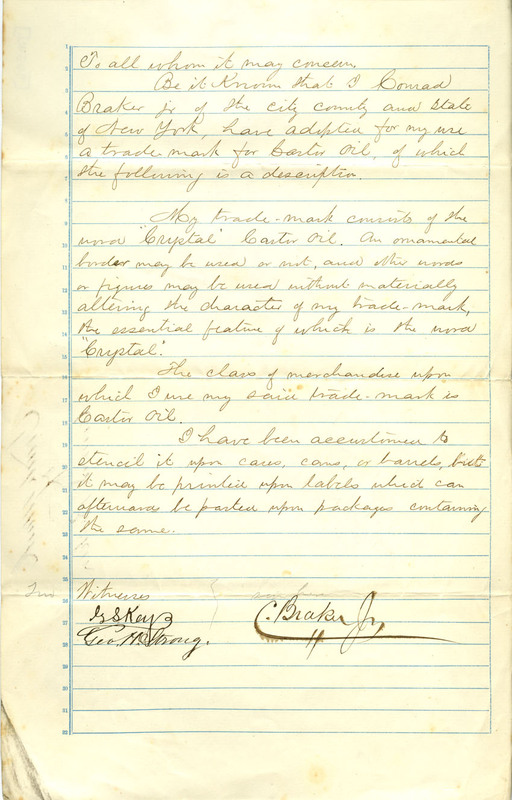 To all whom it may concern,
Be it Known that I Conrad
Braker jr of the city county and State
of New York, have adopted for my use
a trade-mark for Castor Oil, of which
the following is a description.
My trade-mark consists of the
word "Crystal" Castor Oil. An ornamental
border may be used or not, and other words
or figures may be used without materially
altering the character of my trade-mark,
the essential feature of which is the word
"Crystal".
The class of merchandise upon
which I use my said trade-mark is
Castor Oil.
I have been accustomed to
stencil it upon cases, cans, or barrels, but
it may be printed upon labels which can
afterwards be pasted upon packages containing
the same.
Two Witnesses
Geo. M. Strong.
C. Braker Jr